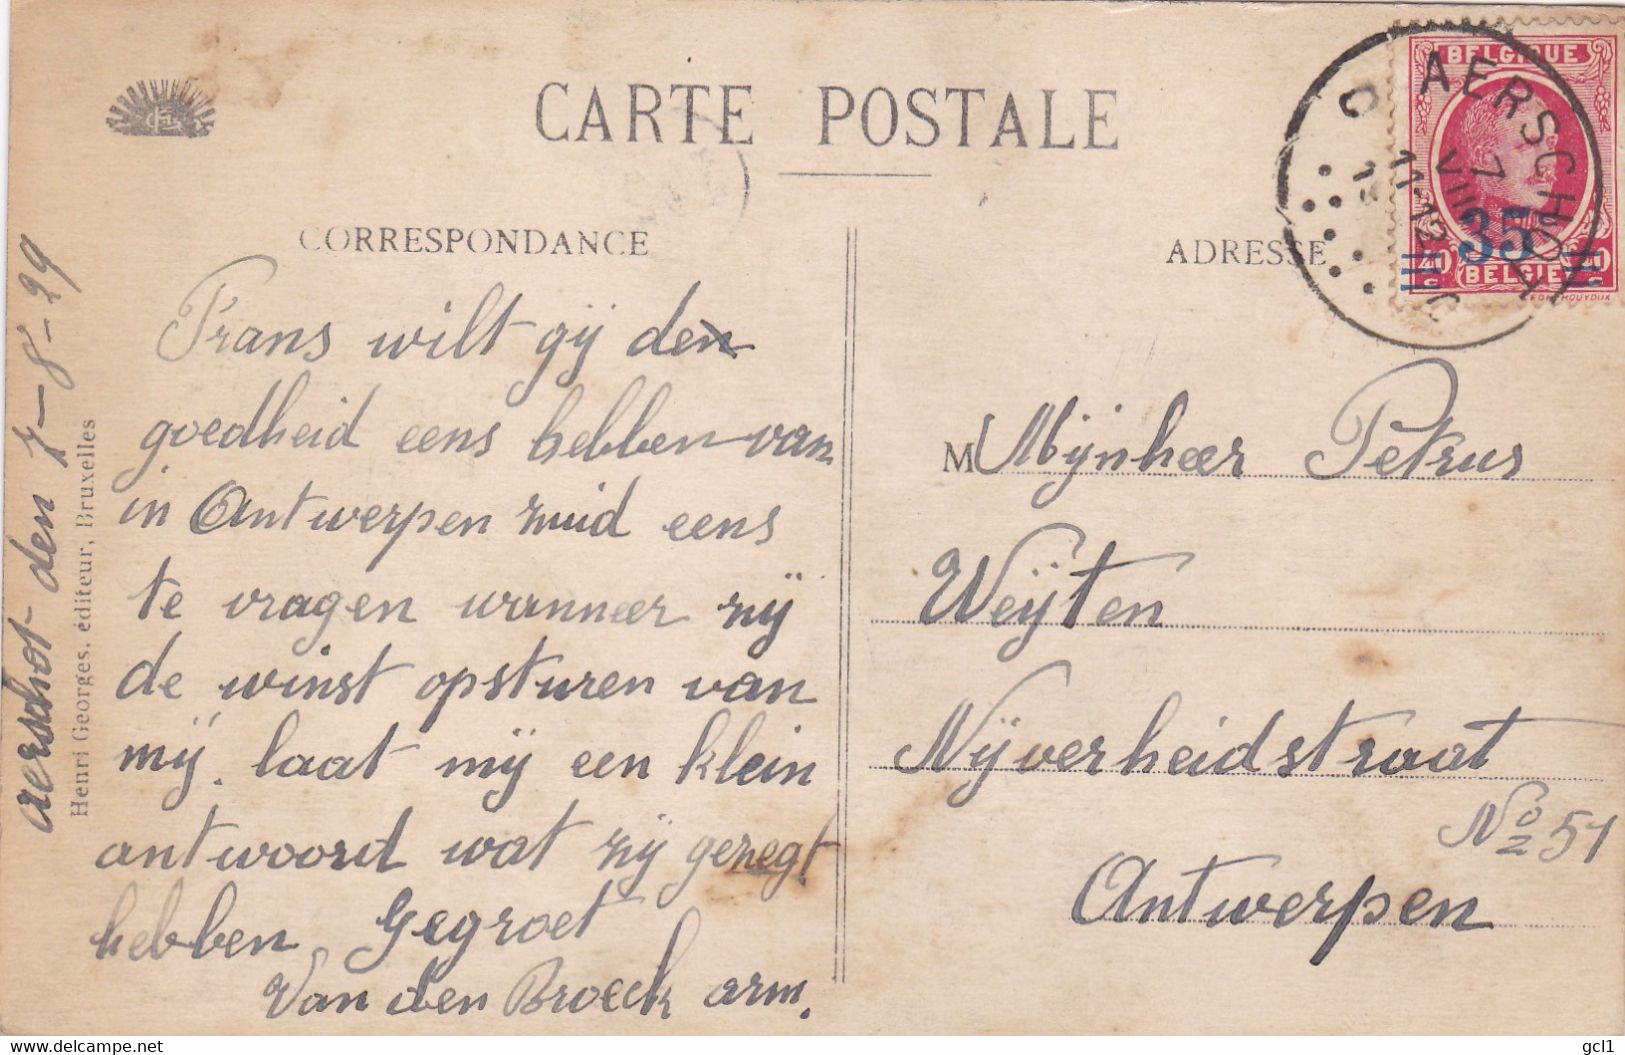 CARTE POSTALE
CORRESPONDANCE
ADRESSE
BELGIQUE
35
BELGIË
AERSCHOT
7
VIII
11-12
Aerschot den 7-8-29
Henri Georges, éditeur, Bruxelles
Frans wilt gij de
goedheid eens hebben van
in Antwerpen zuid eens
te vragen wanneer zij
de winst opsturen van
mij. laat mij een klein
antwoord wat zij gezegt
hebben Gegroet
Van den Broeck arm.
M Mijnheer Petrus
Weijten
Nijverheidstraat
No 51
Antwerpen
gcl1